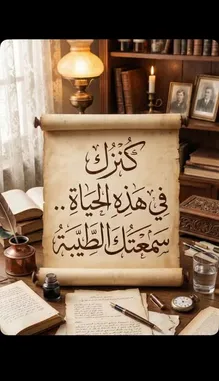 كَنْزُكَ
فِي هَذِهِ الحَيَاةِ ..
سَمْعَتُكَ الطَّيِّبَةُ